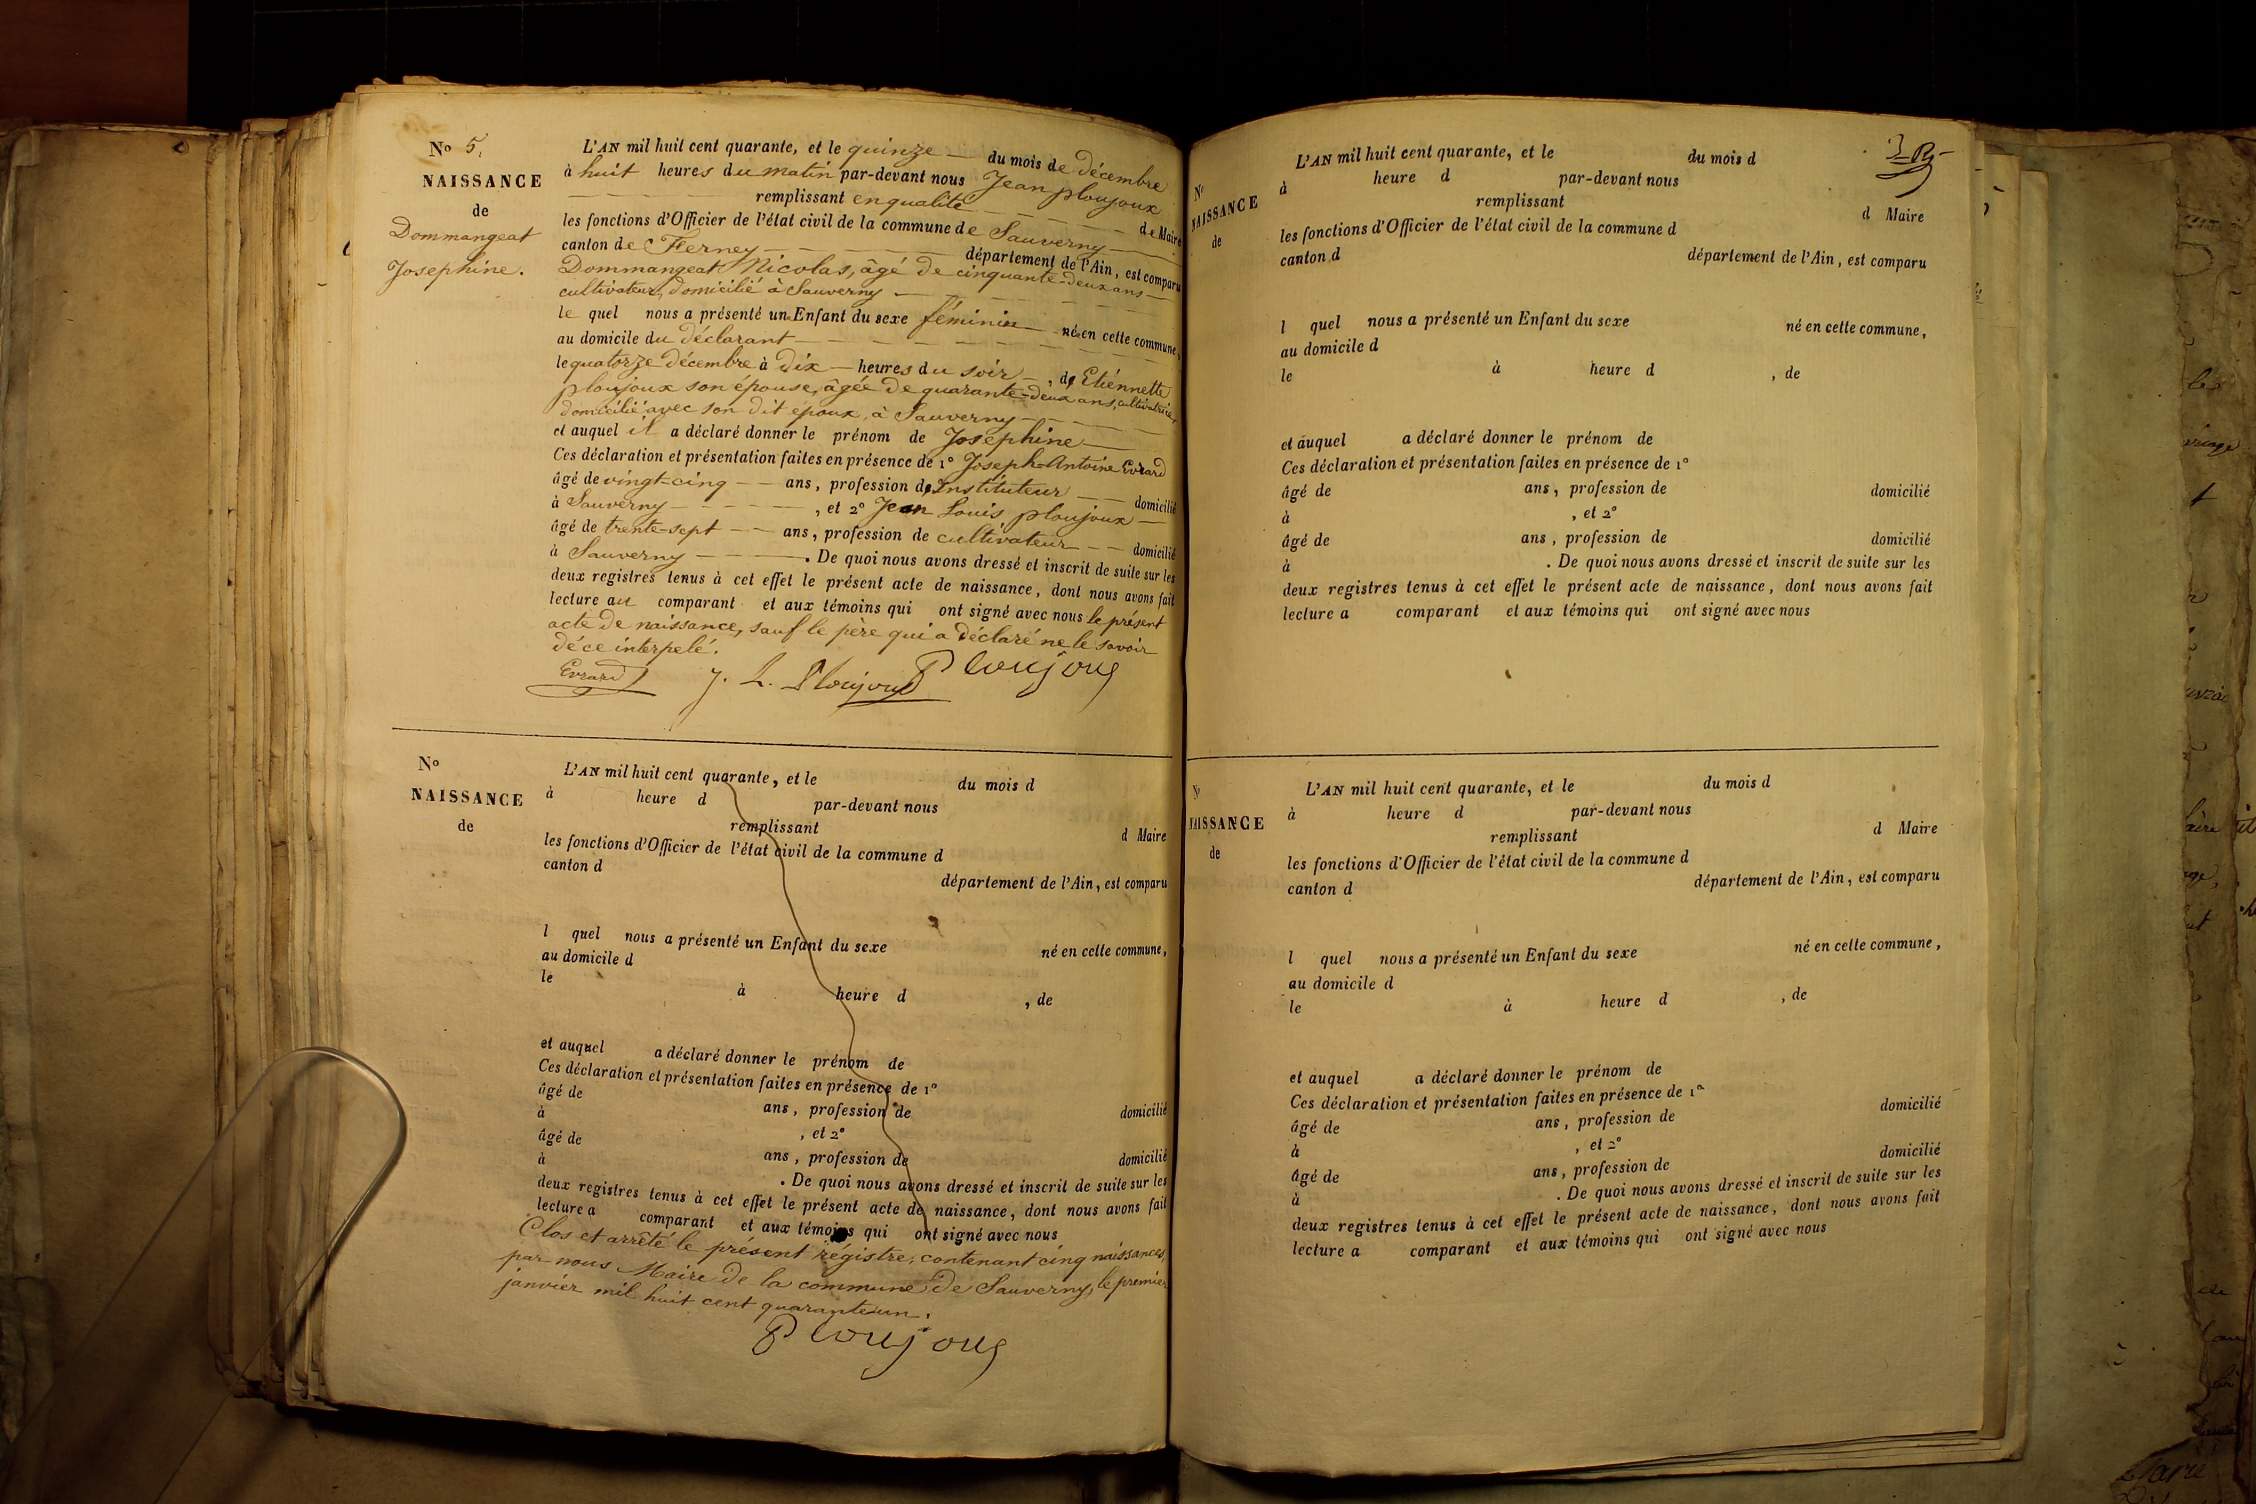 No 5.
NAISSANCE
de
Dommangeat
Josephine.
L'AN mil huit cent quarante, et le quinze du mois de décembre
à huit heures du matin par-devant nous Jean ploujoux
remplissant en qualité de Maire
les fonctions d'Officier de l'état civil de la commune de Sauverny
canton de Ferney département de l'Ain, est comparu
Dommangeat Nicolas, âgé de cinquante-deux ans
cultivateur, domicilié à Sauverny
le quel nous a présenté un Enfant du sexe féminin né en cette commune,
au domicile du déclarant
le quatorze décembre à dix heures du soir, de Etiénnette
ploujoux son épouse, âgée de quarante-deux ans, cultivatrice,
domicilié avec son dit époux, à Sauverny
et auquel il a déclaré donner le prénom de Josephine
Ces déclaration et présentation faites en présence de 1º Joseph-Antoine Evrard
âgé de vingt-cinq ans, profession d'Instituteur domicilié
à Sauverny, et 2º Jean Louis ploujoux
âgé de trente-sept ans, profession de cultivateur domicilié
à Sauverny. De quoi nous avons dressé et inscrit de suite sur les
deux registres tenus à cet effet le présent acte de naissance, dont nous avons fait
lecture au comparant et aux témoins qui ont signé avec nous le présent
acte de naissance, sauf le père qui a déclaré ne le savoir
de ce interpelé.
Evrard J. L. Ploujoux Ploujoux
No
NAISSANCE
de
L'AN mil huit cent quarante, et le du mois d
à heure d par-devant nous
remplissant d Maire
les fonctions d'Officier de l'état civil de la commune d
canton d département de l'Ain, est comparu
l quel nous a présenté un Enfant du sexe né en cette commune,
au domicile d
le à heure d , de
et auquel a déclaré donner le prénom de
Ces déclaration et présentation faites en présence de 1º
âgé de ans, profession de domicilié
à , et 2º
âgé de ans, profession de domicilié
à . De quoi nous avons dressé et inscrit de suite sur les
deux registres tenus à cet effet le présent acte de naissance, dont nous avons fait
lecture a comparant et aux témoins qui ont signé avec nous
Clos et arrêté le présent régistre, contenant cinq naissances,
par nous Maire de la commune de Sauverny, le premier
janvier mil huit cent quarante un.
Ploujoux
No
NAISSANCE
de
L'AN mil huit cent quarante, et le du mois d
à heure d par-devant nous
remplissant d Maire
les fonctions d'Officier de l'état civil de la commune d
canton d département de l'Ain, est comparu
l quel nous a présenté un Enfant du sexe né en cette commune,
au domicile d
le à heure d , de
et auquel a déclaré donner le prénom de
Ces déclaration et présentation faites en présence de 1º
âgé de ans, profession de domicilié
à , et 2º
âgé de ans, profession de domicilié
à . De quoi nous avons dressé et inscrit de suite sur les
deux registres tenus à cet effet le présent acte de naissance, dont nous avons fait
lecture a comparant et aux témoins qui ont signé avec nous
No
NAISSANCE
de
L'AN mil huit cent quarante, et le du mois d
à heure d par-devant nous
remplissant d Maire
les fonctions d'Officier de l'état civil de la commune d
canton d département de l'Ain, est comparu
l quel nous a présenté un Enfant du sexe né en cette commune,
au domicile d
le à heure d , de
et auquel a déclaré donner le prénom de
Ces déclaration et présentation faites en présence de 1º
âgé de ans, profession de domicilié
à , et 2º
âgé de ans, profession de domicilié
à . De quoi nous avons dressé et inscrit de suite sur les
deux registres tenus à cet effet le présent acte de naissance, dont nous avons fait
lecture a comparant et aux témoins qui ont signé avec nous